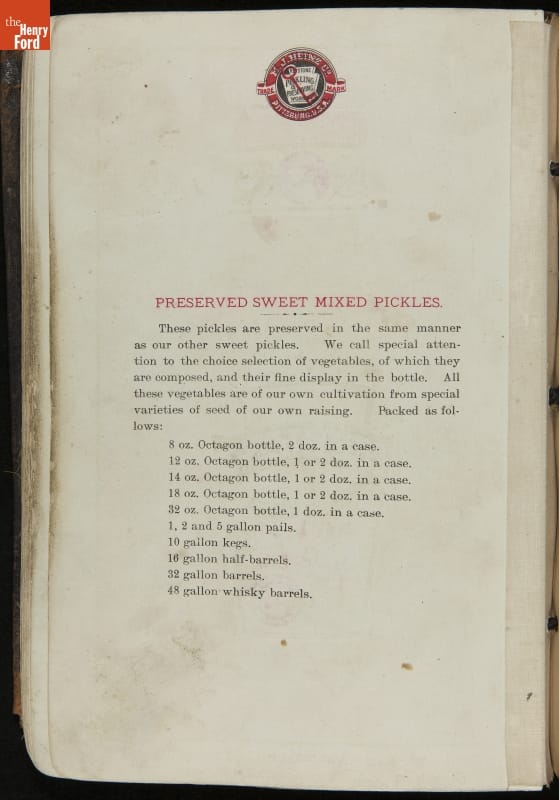 the
Henry
Ford
H. J. HEINZ CO.
KEYSTONE
PICKLING
&
PRESERVING
WORKS
TRADE MARK
PITTSBURG, U.S.A.
PRESERVED SWEET MIXED PICKLES.
These pickles are preserved in the same manner
as our other sweet pickles. We call special atten-
tion to the choice selection of vegetables, of which they
are composed, and their fine display in the bottle. All
these vegetables are of our own cultivation from special
varieties of seed of our own raising. Packed as fol-
lows:
8 oz. Octagon bottle, 2 doz. in a case.
12 oz. Octagon bottle, 1 or 2 doz. in a case.
14 oz. Octagon bottle, 1 or 2 doz. in a case.
18 oz. Octagon bottle, 1 or 2 doz. in a case.
32 oz. Octagon bottle, 1 doz. in a case.
1, 2 and 5 gallon pails.
10 gallon kegs.
16 gallon half-barrels.
32 gallon barrels.
48 gallon whisky barrels.